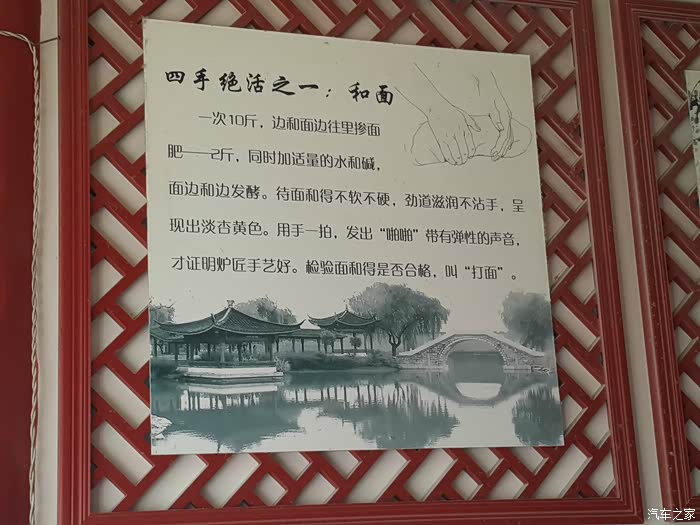 四手绝活之一：和面
一次10斤，边和面边往里掺面
肥——2斤，同时加适量的水和碱，
面边和边发酵。待面和得不软不硬，劲道滋润不沾手，呈
现出淡杏黄色。用手一拍，发出“啪啪”带有弹性的声音，
才证明炉匠手艺好。检验面和得是否合格，叫“打面”。
汽车之家